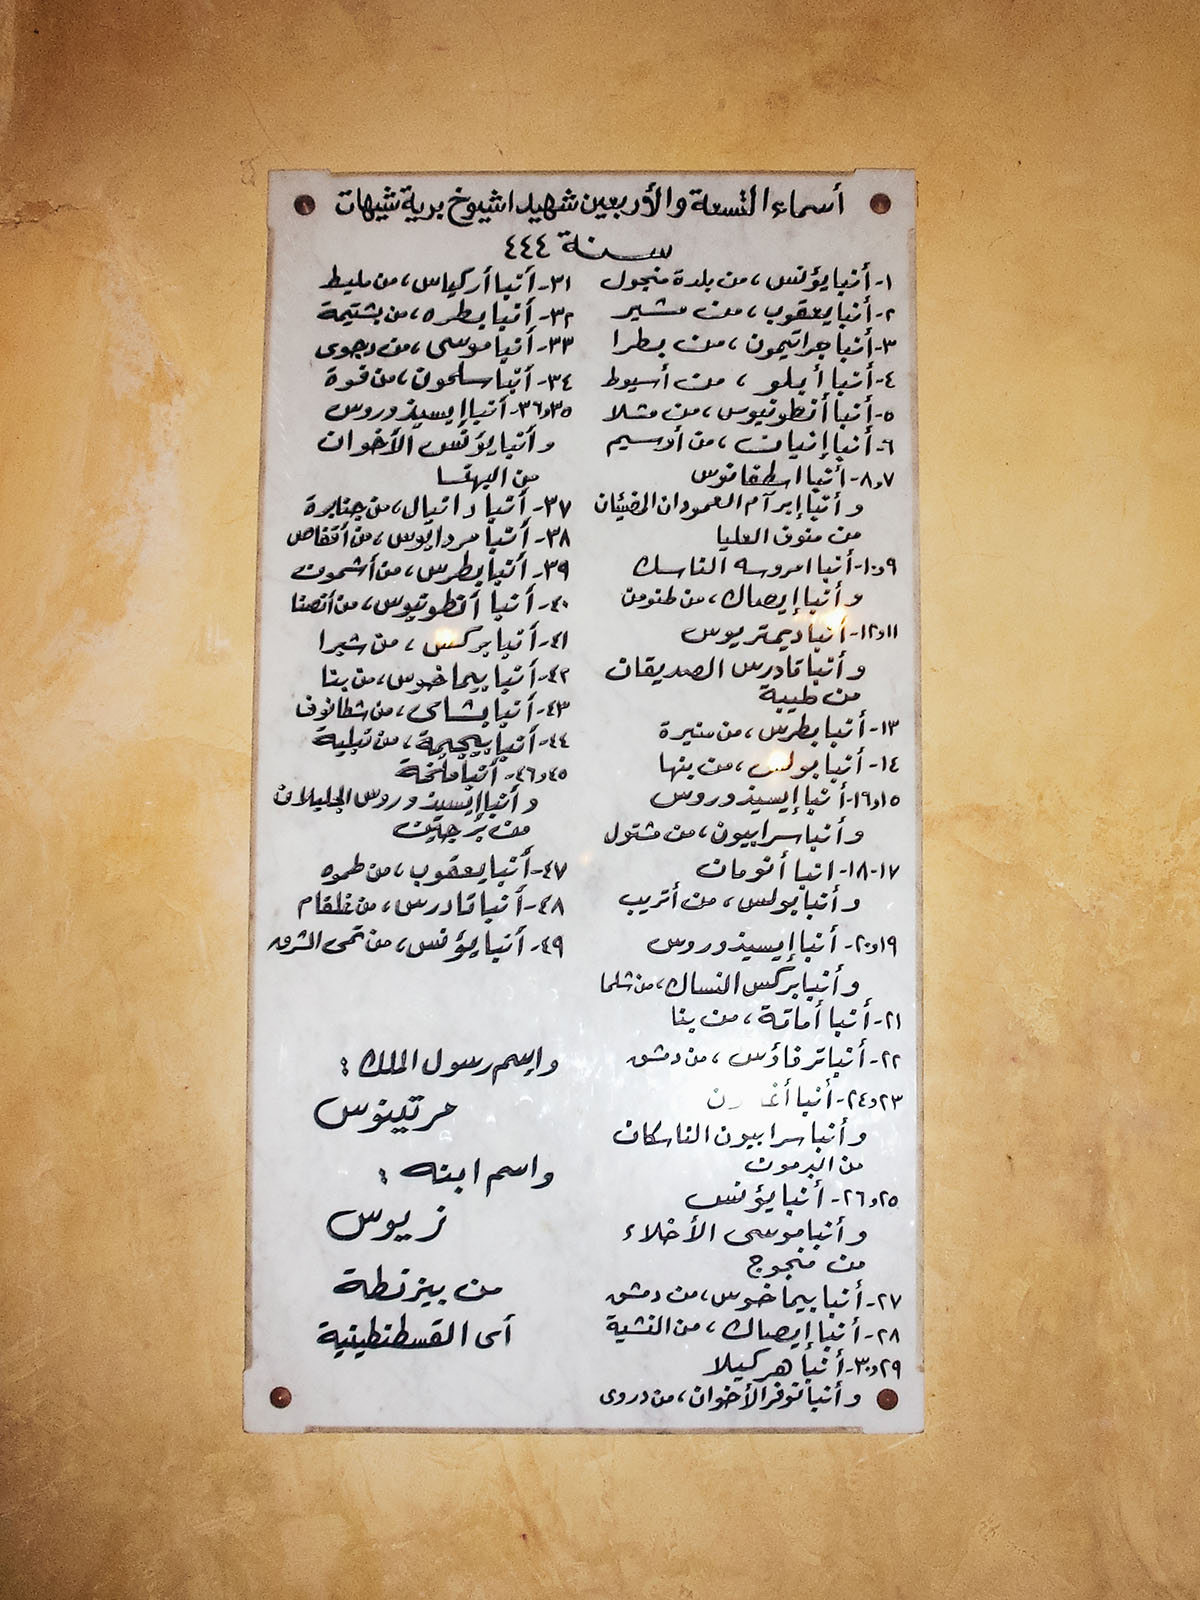 أسماء التسعة والأربعين شهيدا شيوخ برية شيهات
سنة ٤٤٤
١- أنبا يؤنس، من بلدة منجول
٢- أنبا يعقوب، من مشير
٣- أنبا جراتيمون، من بطرا
٤- أنبا أبلو، من أسيوط
٥- أنبا أنطونيوس، من مشلا
٦- أنبا إنيان، من أوسيم
٧و٨- أنبا اسطفانوس
و أنبا إبرآم العمودان المضيئان
من منوف العليا
٩و١٠- أنبا امروسه الناسك
و أنبا إيصاك، من طنومن
١١و١٢- أنبا ديمتريوس
و أنبا تادرس الصديقان
من طيبة
١٣- أنبا بطرس، من منيرة
١٤- أنبا بولس، من بنها
١٥و١٦- أنبا إيسيذوروس
و أنبا سرابيون، من مشتول
١٧-١٨- انبا أنومان
و أنبا بولس، من أتريب
١٩و٢٠- أنبا إيسيذوروس
و أنبا بركس النساك، من شلما
٢١- أنبا أماتة، من بنا
٢٢- أنبا ترفاؤس، من دمشق
٢٣و٢٤- أنبا
و أنبا سرابيون الناسكان
من البرمون
٢٥و٢٦- أنبا يؤنس
و أنبا موسى الأخلاء
من منجوج
٢٧- أنبا بيماخوس، من دمشق
٢٨- أنبا إيصاك، من النشية
٢٩و٣٠- أنبا هركيلا
و أنبا نوفر الأخوان، من دروى
٣١- أنبا أركياس، من مليط
٣٢- أنبا بطره، من بشتيمة
٣٣- أنبا موسى، من دجوى
٣٤- أنبا سلمون، من فوة
٣٥و٣٦- أنبا إيسيذوروس
و أنبا يؤنس الأخوان
من البهنسا
٣٧- أنبا دانيال، من جنابرة
٣٨- أنبا مردايوس، من أقفاص
٣٩- أنبا بطرس، من أشمون
٤٠- أنبا أنطونيوس، من أنصنا
٤١- أنبا بركس، من شبرا
٤٢- أنبا بيماخوس، من بنا
٤٣- أنبا بشاى، من شطانوف
٤٤- أنبا بيجيمة، من تبلية
٤٥و٤٦- أنبا ملخة
و أنبا إيسيذوروس الجليلان
من برجتين
٤٧- أنبا يعقوب، من طموه
٤٨- أنبا تادرس، من خلقام
٤٩- أنبا يؤنس، من تمى الشرق
وإسم رسول الملك :
مرتينوس
واسم ابنه :
زيوس
من بيزنطة
أى القسطنطينية